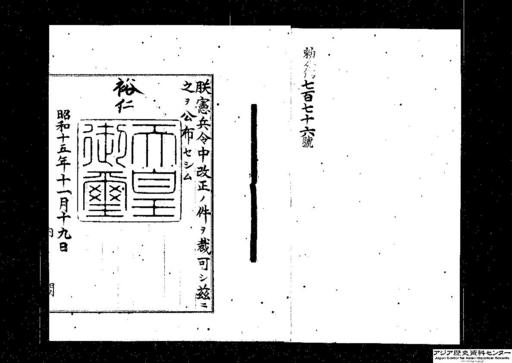 勅令七百七十六號
朕憲兵令中改正ノ件ヲ裁可シ茲ニ
之ヲ公布セシム
裕仁
天皇
御璽
昭和十五年十一月十九日
内閣
アジア歴史資料センター
Japan Center for Asian Historical Records